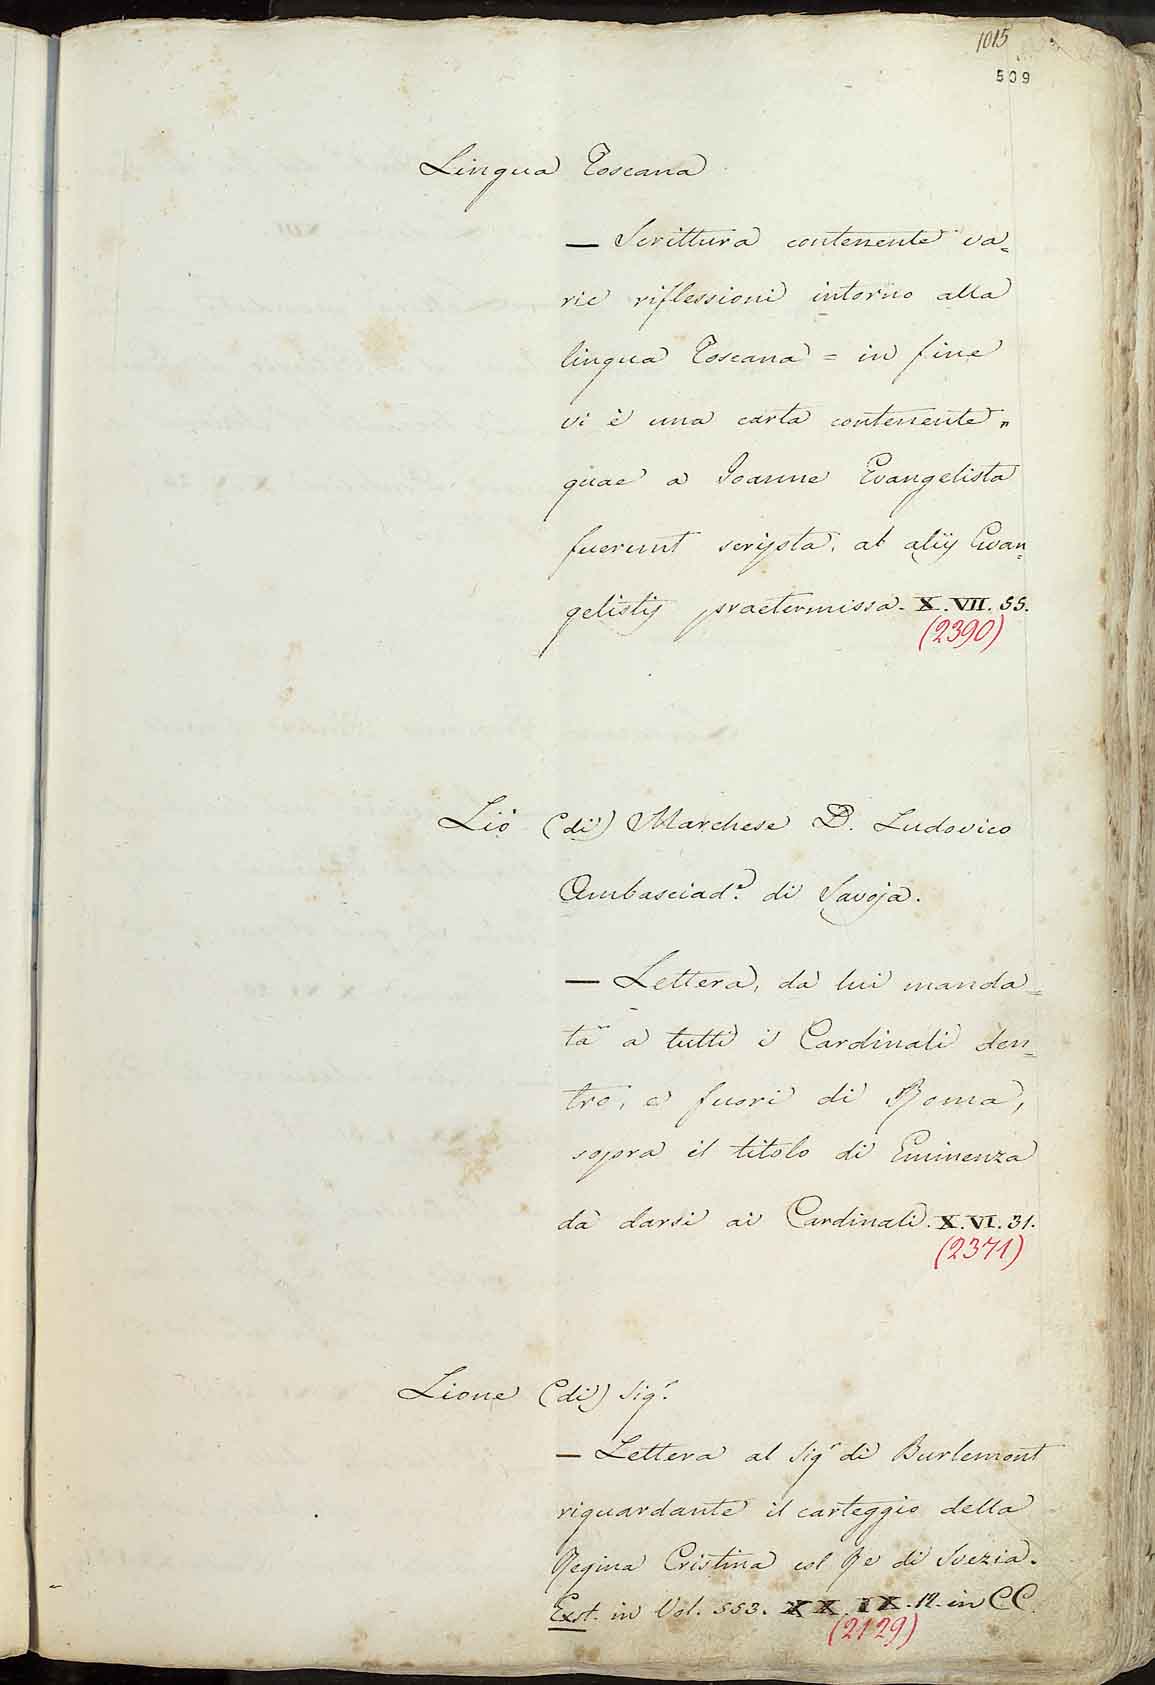 1015
509
Lingua Toscana
— Scrittura contenente va=
rie riflessioni intorno alla
lingua Toscana = in fine
vi è una carta contenente "
quae a Joanne Evangelista
fuerunt scripta, ab aliis Evan=
gelistis praetermissa. X. VII. 55.
(2390)
Liò (di) Marchese D. Ludovico
Ambasciad.e di Savoja.
— Lettera, da lui manda=
ta a tutti i Cardinali den=
tro, e fuori di Roma,
sopra il titolo di Eminenza
da darsi ai Cardinali. X. VI. 31.
(2371)
Lione (di) Sig.r
— Lettera al Sig.r di Burlemont
riguardante il carteggio della
Regina Cristina col Re di Svezia.
Exst. in Vol. 553. XX. IX. 12. in CC.
(2129)